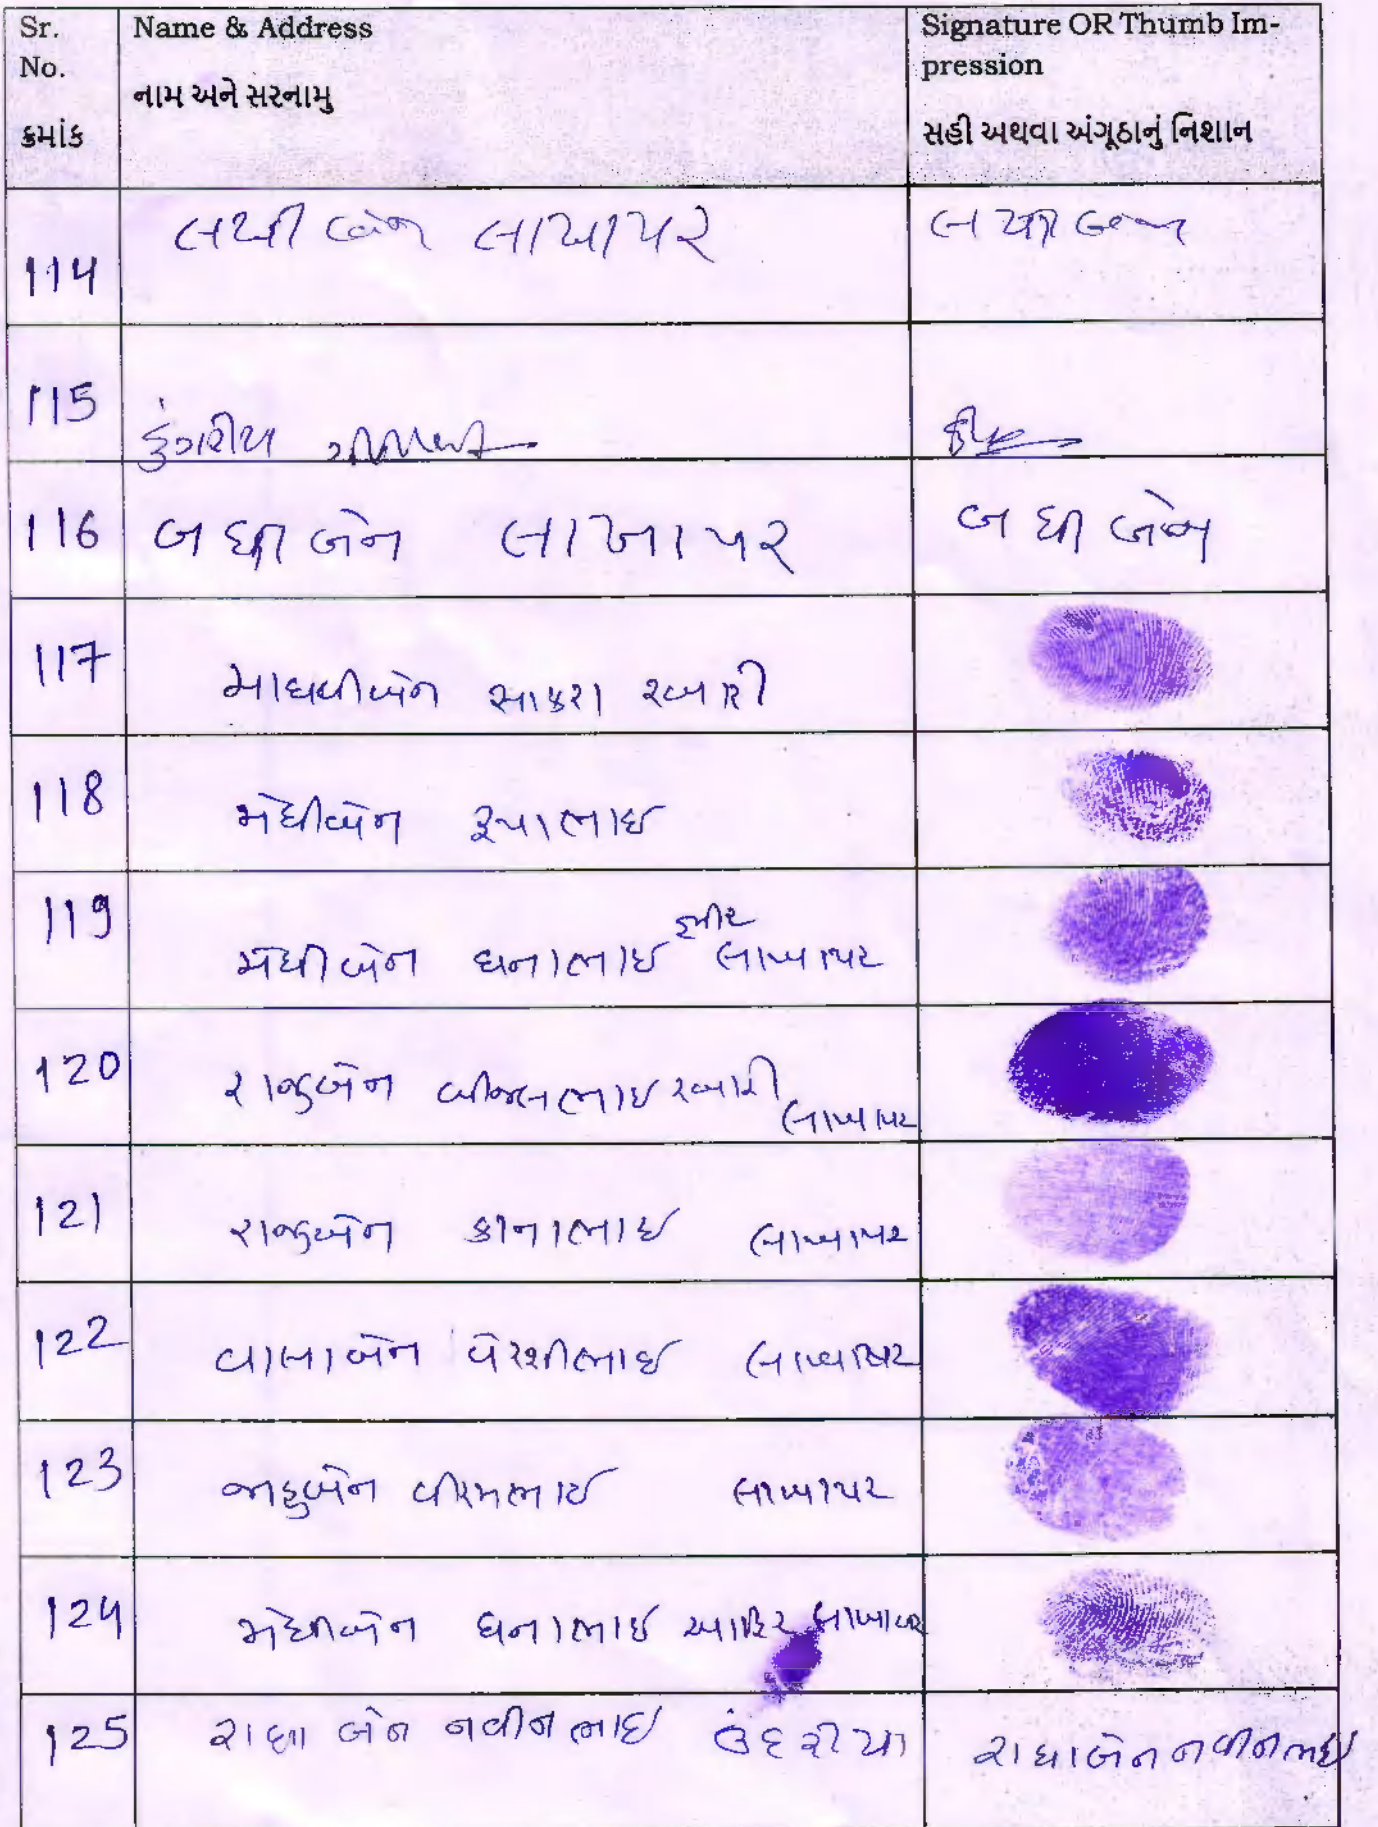 Sr. No. ક્રમાંક | Name & Address નામ અને સરનામુ | Signature OR Thumb Im-pression સહી અથવા અંગૂઠાનું નિશાન
114 લખી બેન લાખાપર
115
116 બધી બેન લાખાપર બધી બેન
117 માધવીબેન સાકરા રબારી
118 મેઘીબેન રૂપાભાઇ
119 મેઘીબેન ધનાભાઇ લાખાપર
120 રાજુબેન વીજલભાઇ રબારી લાખાપર
121 રાજુબેન કાનાભાઇ લાખાપર
122 વાલાબેન વેરશીભાઇ લાખાપર
123 વીરમભાઇ લાખાપર
124 મેઘીબેન ધનાભાઇ આહિર લાખાપર
125 રાધા બેન નવીનભાઇ ઉંદરીયા રાધાબેન નવીનભાઇ